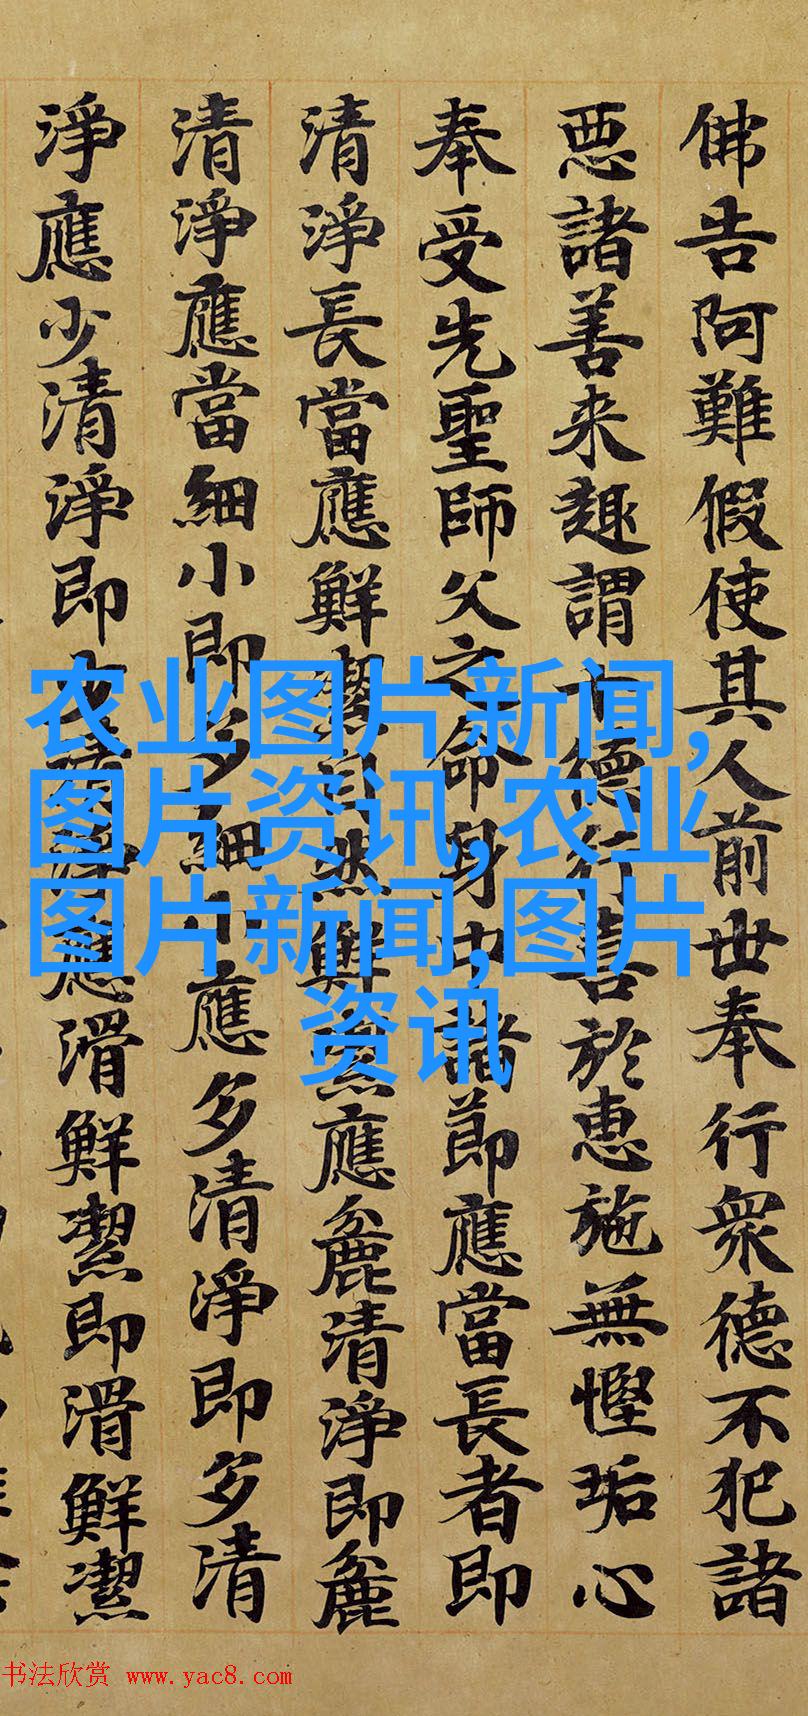 佛告阿難假使其人前世奉行衆德不犯諸
惡諸善来趣謂德行喜於惠施無慳垢心
奉受先聖師父之命身中諸節應當長者即
清淨長當應鮮潔自然鮮潔應麁清淨即麁
清淨應當細小即多細小應多清淨即多清
淨應少清淨即少清淨應滑鮮潔即滑鮮潔
农业图片新闻,
图片资讯,农业
图片新闻,图片
资讯
书法欣赏 www.yac8.com